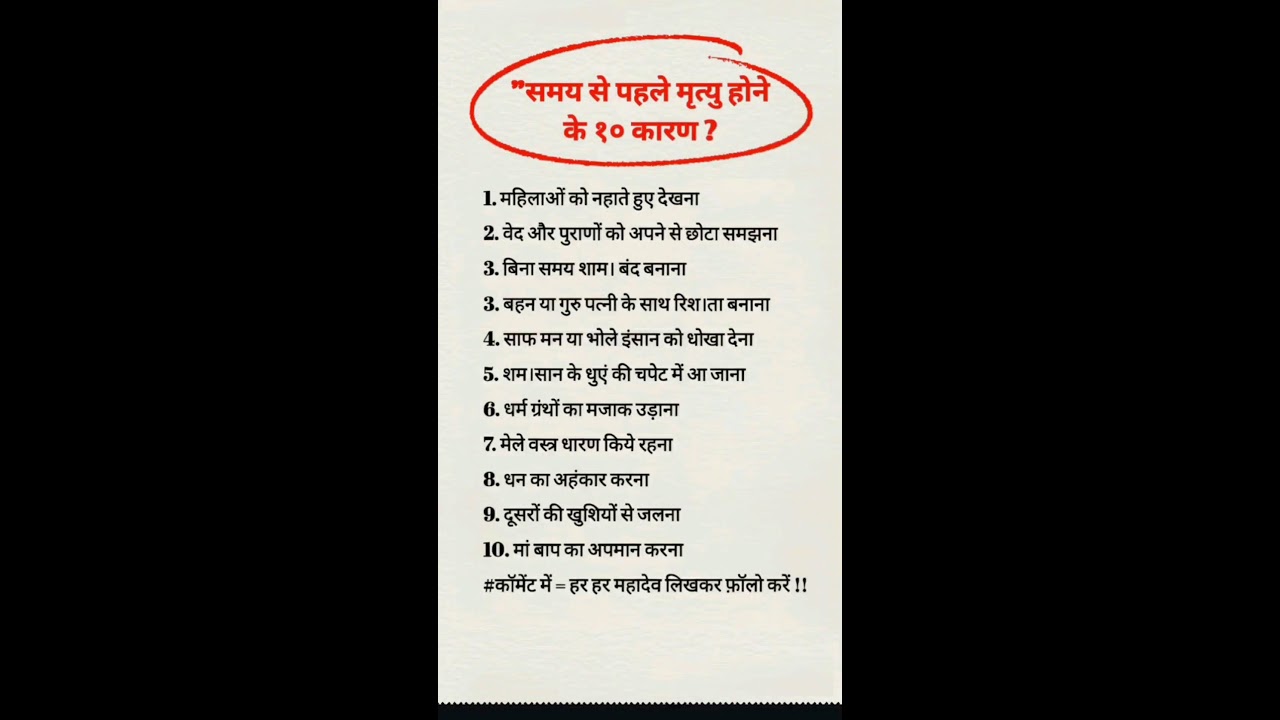 "समय से पहले मृत्यु होने
के १० कारण ?
1. महिलाओं को नहाते हुए देखना
2. वेद और पुराणों को अपने से छोटा समझना
3. बिना समय शाम। बंद बनाना
3. बहन या गुरु पत्नी के साथ रिश।ता बनाना
4. साफ मन या भोले इंसान को धोखा देना
5. शम।सान के धुएं की चपेट में आ जाना
6. धर्म ग्रंथों का मजाक उड़ाना
7. मेले वस्त्र धारण किये रहना
8. धन का अहंकार करना
9. दूसरों की खुशियों से जलना
10. मां बाप का अपमान करना
#कॉमेंट में = हर हर महादेव लिखकर फ़ॉलो करें !!